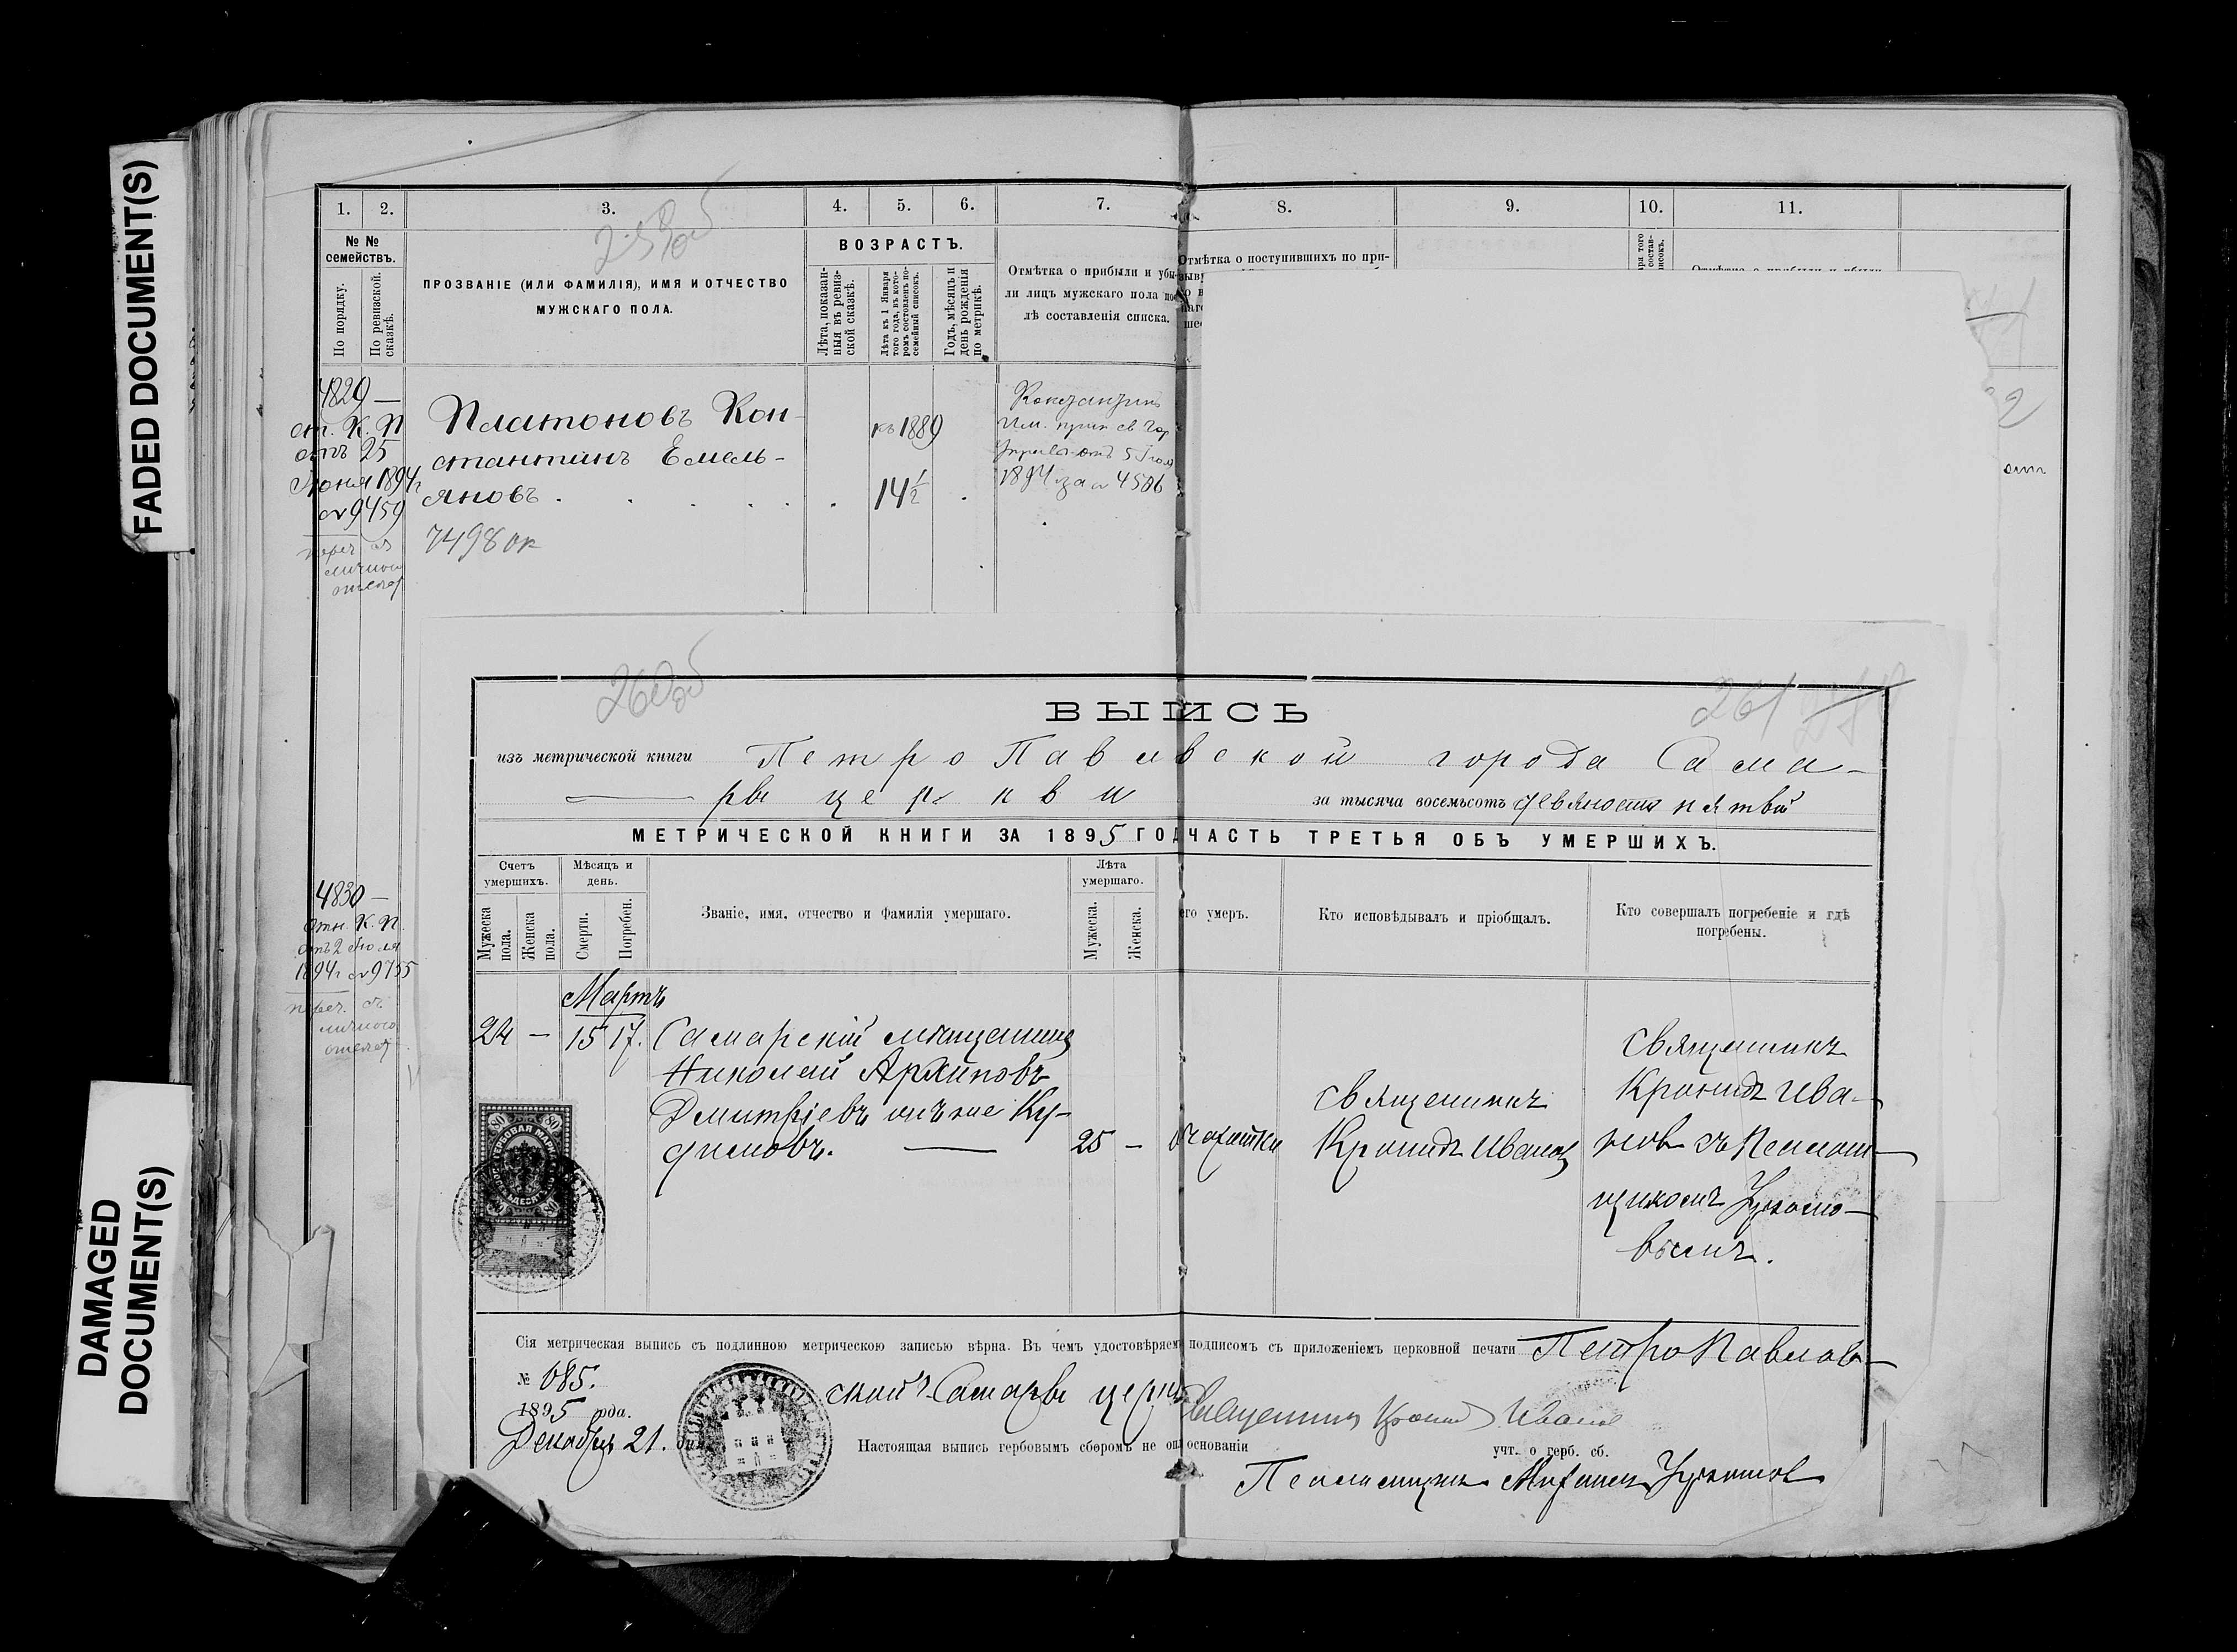 FADED DOCUMENT(S)
DAMAGED
DOCUMENT(S)
1. 2. 3. 4. 5. 6. 7. 8. 9. 10. 11.
259об
№ №
семействъ.
По порядку.
По ревизской сказкѣ.
ПРОЗВАНІЕ (ИЛИ ФАМИЛІЯ), ИМЯ И ОТЧЕСТВО
МУЖСКАГО ПОЛА.
ВОЗРАСТЪ.
Лѣта, показан-
ныя въ ревиз-
ской сказкѣ.
Лѣта къ 1 Января
того года, въ кото-
ромъ составленъ по-
семейный списокъ.
Годъ, мѣсяцъ и
день рожденія
по метрикѣ.
Отмѣтка о прибыли и убы-
ли лицъ мужскаго пола пос-
лѣ составленія списка.
Отмѣтка о поступившихъ по при-
4829 —
от. К. П
отъ 25
Іюня 1894г
№ 9459
переч. съ
личного
Платоновъ Кон-
стантинъ Емель-
яновъ
къ 1889
14 1/2
1894 за № 4506
7498 ок
4830 —
отн. К. П.
отъ 2 Іюля
1894г № 9755
переч. съ
личного
260об
261
ВЫПИСЬ
изъ метрической книги Петро Павлвской города Сама-
ры церкви за тысяча восемьсотъ девяносто пятый
МЕТРИЧЕСКОЙ КНИГИ ЗА 1895 ГОД ЧАСТЬ ТРЕТЬЯ ОБЪ УМЕРШИХЪ.
Счетъ
умершихъ.
Мужеска
пола.
Женска
пола.
Мѣсяцъ и
день.
Смерти.
Погребен.
Званіе, имя, отчество и фамилія умершаго.
Лѣта
умершаго.
Мужеска.
Женска.
его умеръ.
Кто исповѣдывалъ и пріобщалъ.
Кто совершалъ погребеніе и гдѣ
погребены.
Мартъ
24 — 15 17.
Самарскій мѣщанинъ
Николай Архиповъ
Дмитріевъ онъ же Ку-
димовъ. —
25 — чахотки
Священникъ
Кронидъ Ивановъ
Священникъ
Кронидъ Ива-
новъ съ Псаломщ-
щикомъ
вымъ.
80 80
ГЕРБОВАЯ МАРКА
Сія метрическая выпись съ подлинною метрическою записью вѣрна. Въ чемъ удостовѣряем подписомъ съ приложеніемъ церковной печати Петро Павлов-
ской г. Самары церкви
№ 685.
1895 года.
Декабря 21. дня
Священникъ Кронидъ Ивановъ
Настоящая выпись гербовымъ сборомъ не опл основаніи учт. о герб. сб.
Псаломщикъ Михаилъ